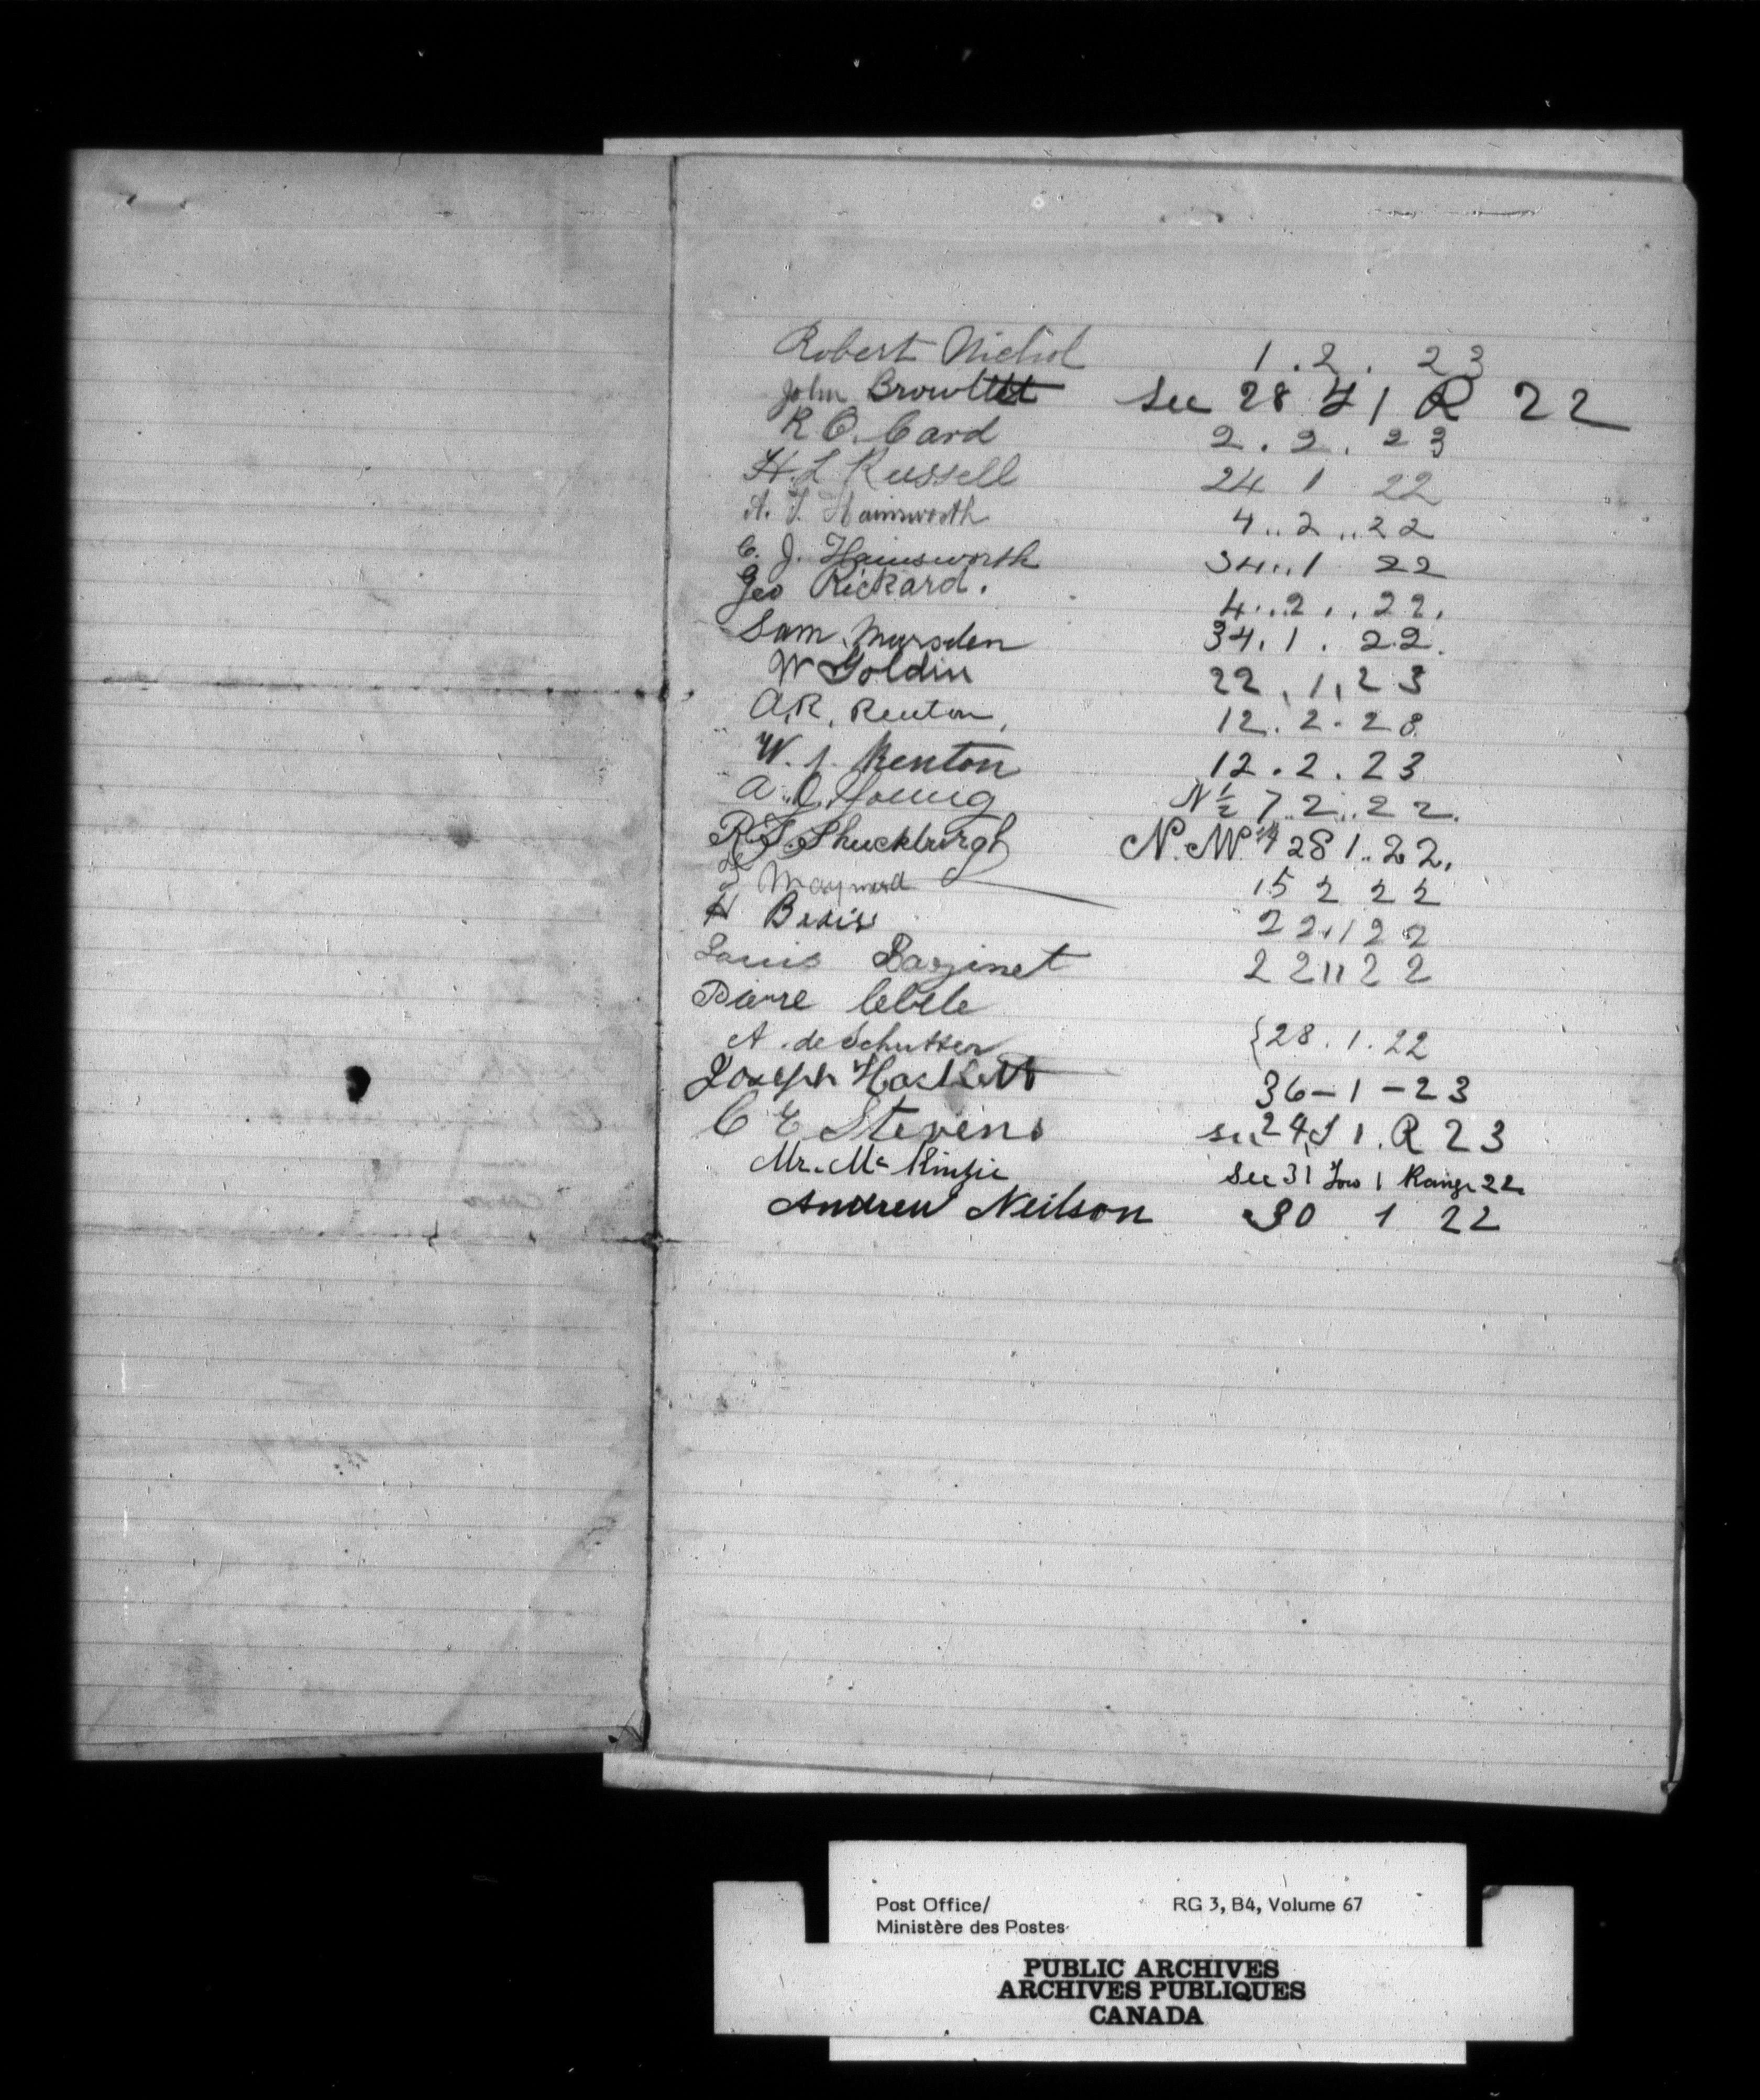 Robert Nichol 1 . 2 . 23
John Sec 28 T 1 R 22
R O. Card 2 . 2 . 23
H. L Russell 24 1 22
A. T. Hainsworth 4 .. 2 .. 22
C. J. Hainsworth 34 .. 1 22
Geo Rickard. 4 ... 2 . , 22.
Sam. Marsden 34. 1 . 22.
W Goldin 22 , 1 , 23
A. R. Renton, 12 . 2 . 23
W. J. Renton 12 . 2 . 23
A. J. Young N ½ 7 .. 2 .. 22.
R. J. Shuckburgh N. W. ¼ 28 1 .. 22.
Maynard 15 2 22
H 22 .. 1 22
Louis Bazinet 22 11 22
Pierre
A . de Schutter {28 . 1 . 22
Joseph Hackett 36 – 1 – 23
C E Stevens Sec 24 T 1 . R 23
Mr. Mc Kinzie Sec 31 Tow 1 Range 22.
Andrew Neilson 30 1 22
Post Office/ RG 3, B4, Volume 67
Ministère des Postes
PUBLIC ARCHIVES
ARCHIVES PUBLIQUES
CANADA